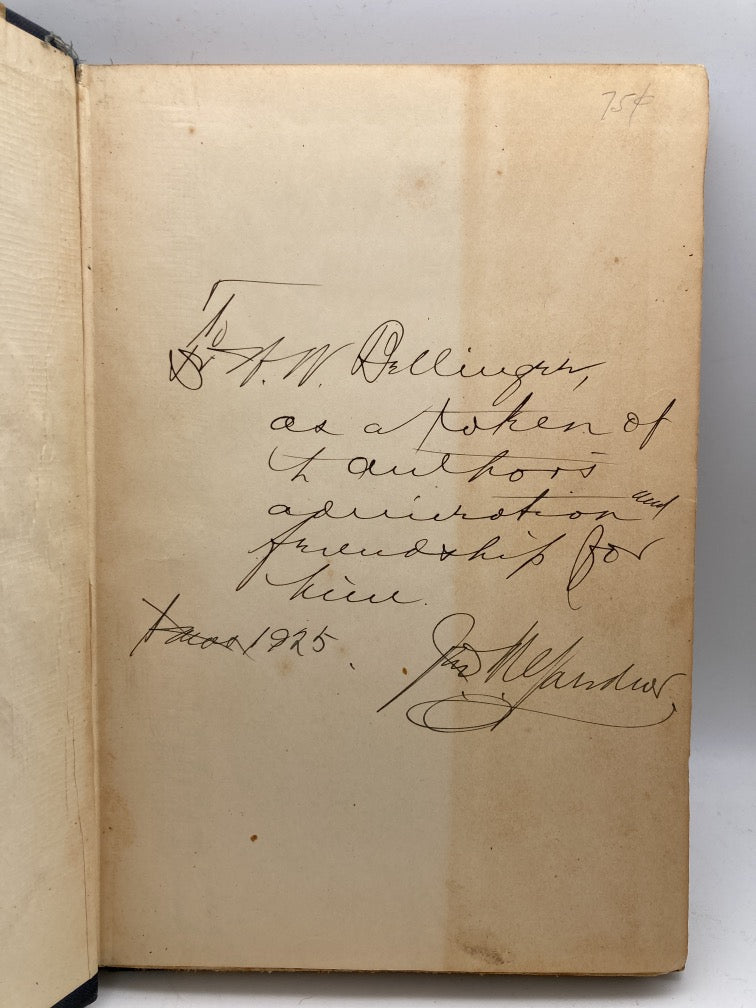 75¢
To
Dr H. W. Dellinger,
as a token of
th authors
admiration and
friendship for
him.
Xmas 1925.
Gardner